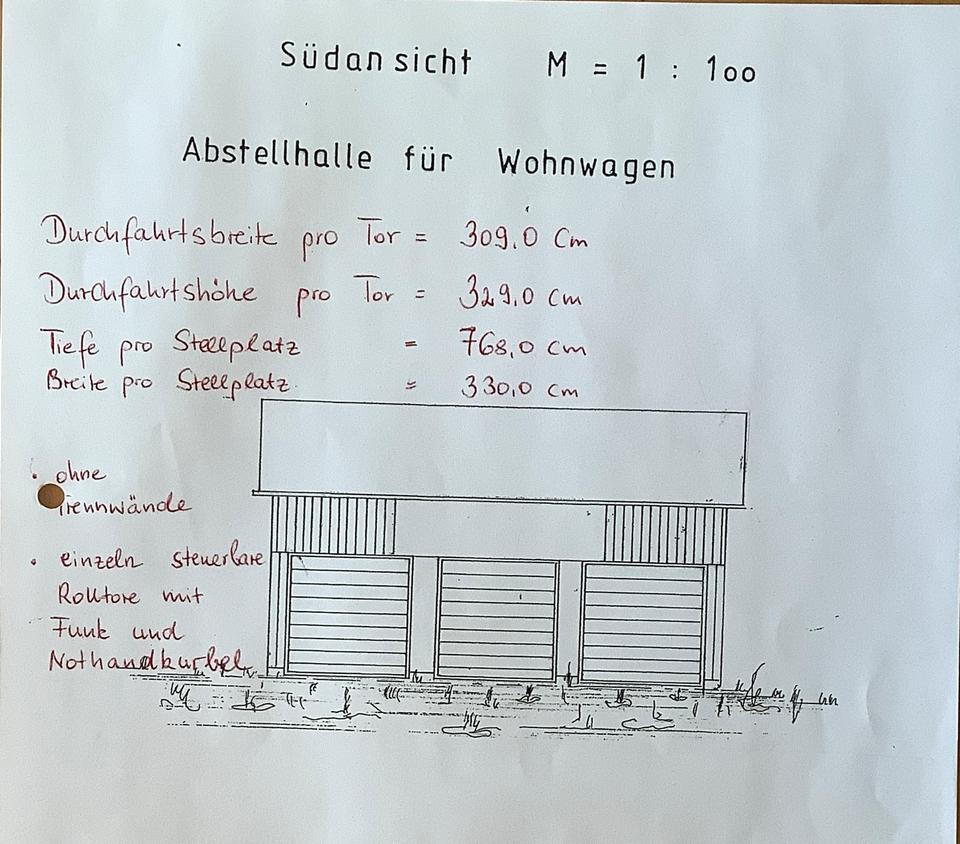 Südansicht M = 1 : 100
Abstellhalle für Wohnwagen
Durchfahrtsbreite pro Tor = 309,0 cm
Durchfahrtshöhe pro Tor = 329,0 cm
Tiefe pro Stellplatz = 768,0 cm
Breite pro Stellplatz = 330,0 cm
• ohne
Trennwände
• einzeln steuerbare
Rolltore mit
Funk und
Nothandkurbel